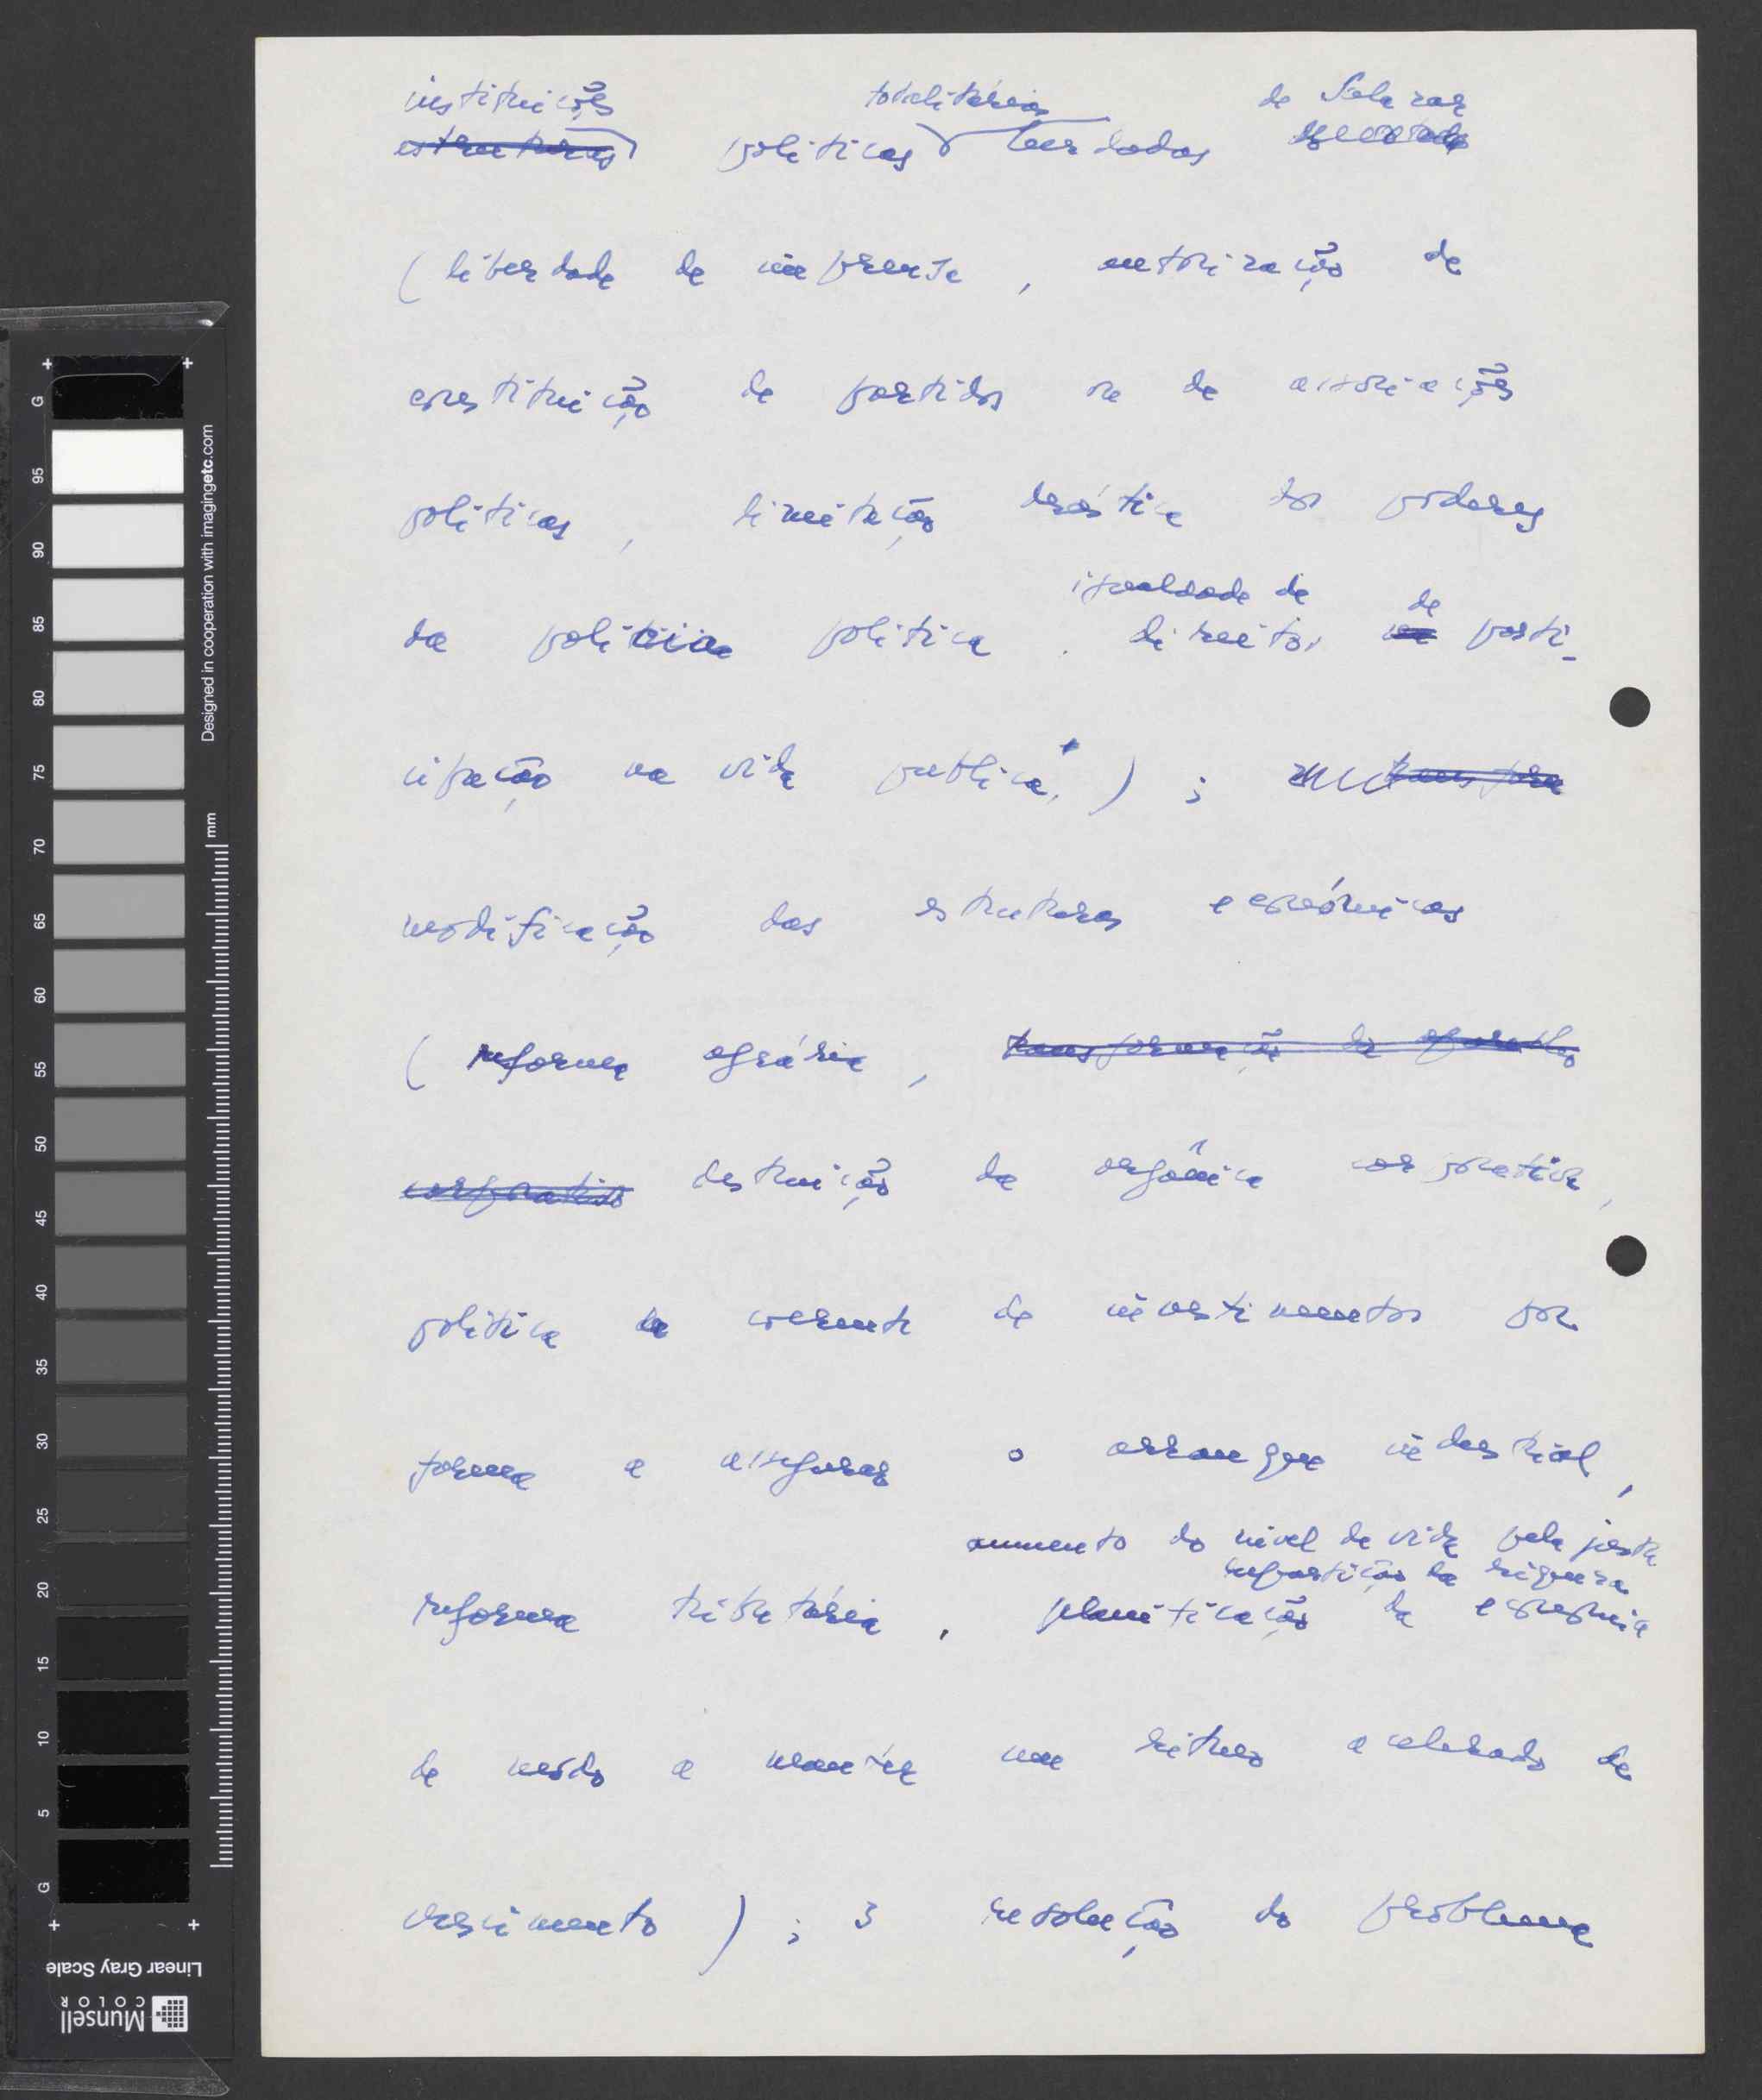 instituições totalitárias de Salazar
estruturas políticas herdadas
(liberdade de imprensa, autorização de
constituição de partidos ou de associações
políticas, limitação drástica dos poderes
igualdade de de
da polícia política, direitos parti-
cipação na vida pública); transfor
modificação das estruturas económicas
(reforma agrária, transformação do aparelho
corporativo destruição da orgânica corporativa,
política coerente de investimentos por
forma a assegurar o arranque industrial,
aumento do nível de vida pela justa
repartição da riqueza
reforma tributária, planificação da economia
de modo a manter um ritmo acelerado de
crescimento); 3 resolução do problema
G 95 90 85 80 75 70 65 60 55 50 45 40 35 30 25 20 15 10 5 G
Designed in cooperation with imagingetc.com
mm
Linear Gray Scale
Munsell
COLOR